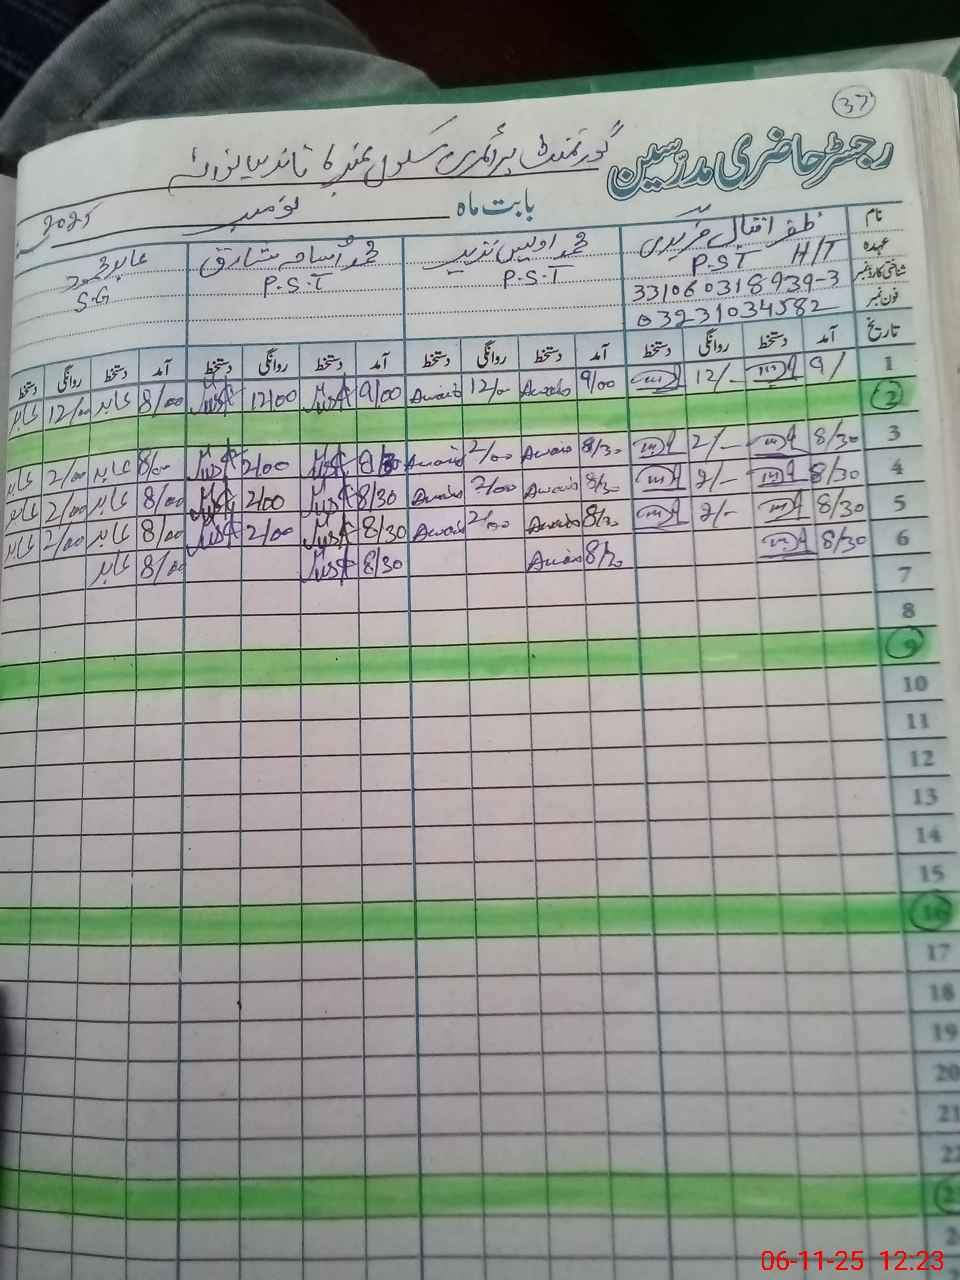 37
رجسٹر حاضری مدرسین گورنمنٹ پرائمری سکول
بابت ماہ نومبر 2025
نام ظفر اقبال محمد اویس نذیر محمد اسامہ شارق عابد محمود
عہدہ P.S.T H/T P.S.T P.S.T S.G
شناختی کارڈ نمبر 331060318939-3
فون نمبر 03231034582
تاریخ آمد دستخط روانگی دستخط آمد دستخط روانگی دستخط آمد دستخط روانگی دستخط آمد دستخط روانگی دستخط
1 9/ 12/- 9/00 Awais 12/00 Awais 9/00 12/00 8/00 عابد 12/00 عابد
2
3 8/30 2/- 8/30 Awais 2/00 Awais 8/30 2/00 8/00 عابد 2/00 عابد
4 8/30 2/- 8/30 Awais 2/00 Awais 8/30 2/00 8/00 عابد 2/00 عابد
5 8/30 2/- 8/30 Awais 2/00 Awais 8/30 2/00 8/00 عابد 2/00 عابد
6 8/30 8/30 Awais 8/30 8/00 عابد
7
8
9
10
11
12
13
14
15
16
17
18
19
20
21
22
23
06-11-25 12:23